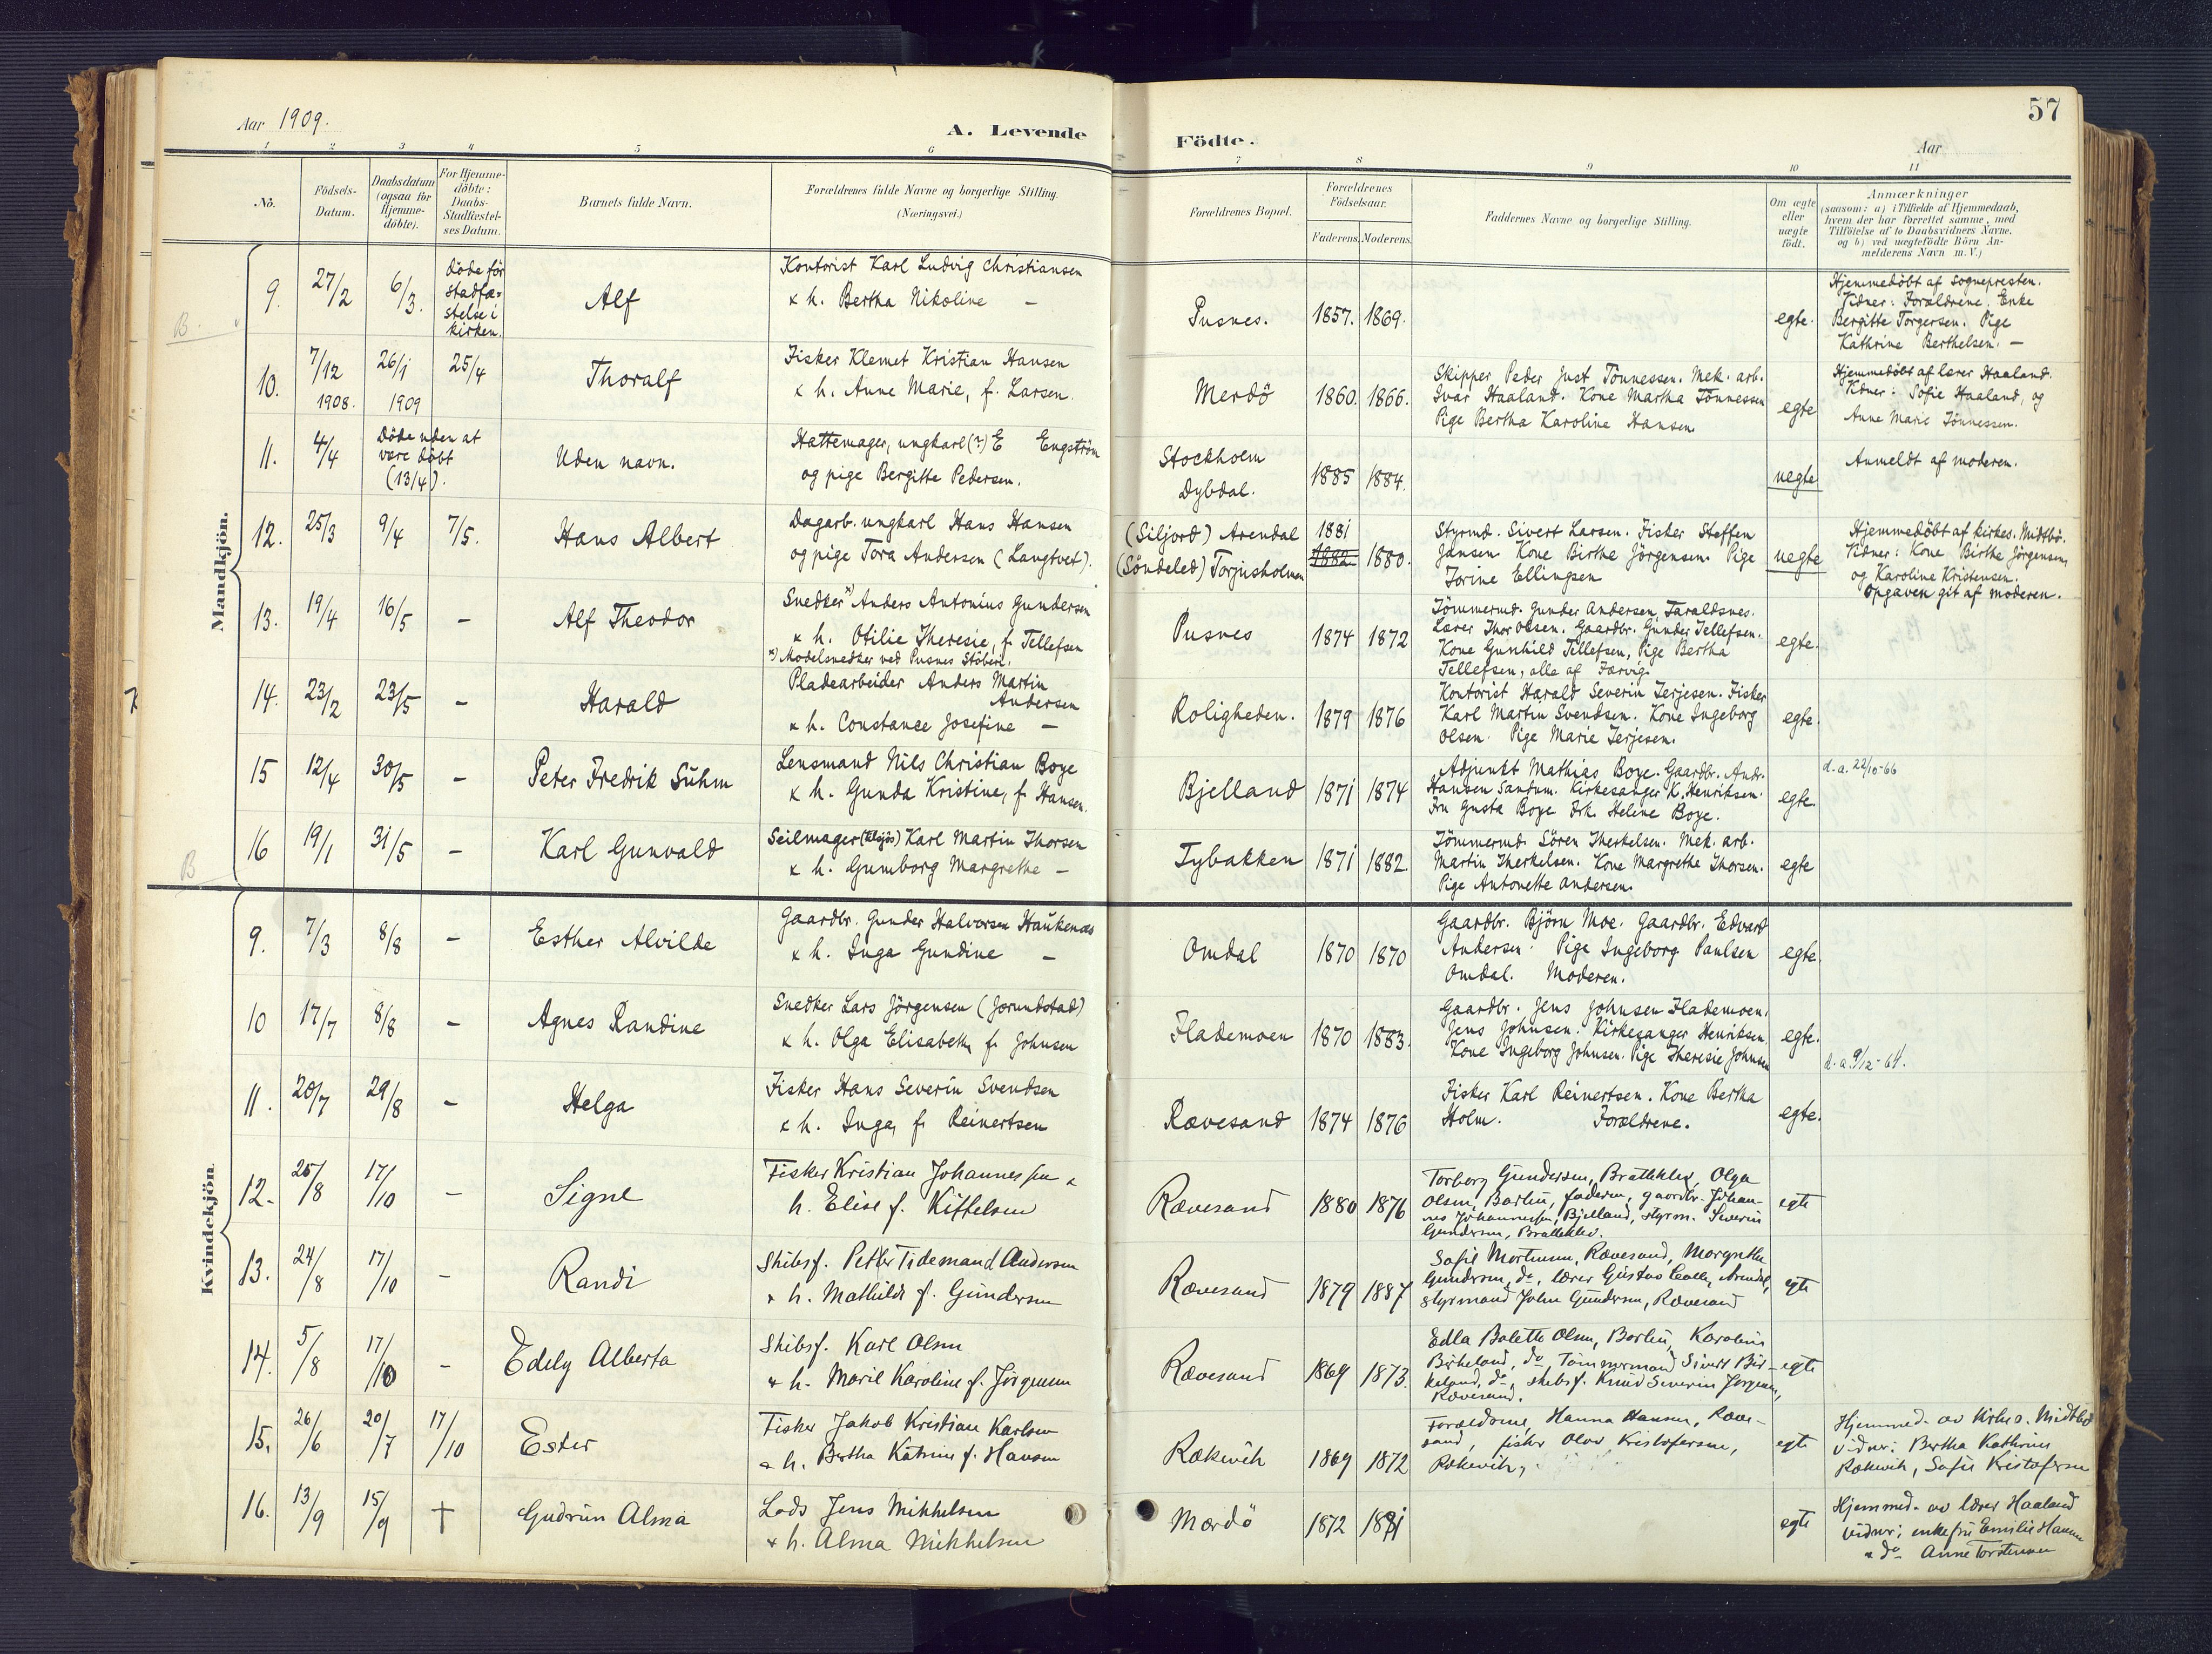 Aar 1909.
A. Levende
Födte.
Aar
57
1 2 3 4 5 6 7 8 9 10 11
No.
Födsels-Datum.
Daabsdatum (ogsaa for Hjemme-döbte).
For Hjemme-döbte: Daabs-Stadfæstel-ses Datum.
Barnets fulde Navn.
Forældrenes fulde Navne og borgerlige Stilling.
(Næringsvei.)
Forældrenes Bopæl.
Forældrenes Födselsaar.
Faderens. Moderens.
Faddernes Navne og borgerlige Stilling.
Om ægte eller uægte födt.
Anmærkninger
(saasom: a) i Tilfælde af Hjemmedaab,
hvem der har forrettet samme, med
Tilföielse af to Daabsvidners Navne.
og b) ved uægtefödte Börn An-
melderens Navn m. V.)
Mandkjön.
B.
9. 27/2 6/3. döde før stadfæ-stelse i kirken. Alf
Kontorist Karl Ludvig Christiansen
& h. Bertha Nikoline —
Pusnes. 1857. 1869. egte.
Hjemmedöbt af sognepresten.
Vidner: Forældrene. Enke
Bergitte Torgersen. Pige
Kathrine Berthelsen. —
10. 7/12 1908. 26/1 1909 25/4 Thoralf
Fisker Klemet Kristian Hansen
& h. Anne Marie, f. Larsen.
Merdö 1860. 1866.
Skipper Peder Just Tönnessen. Mek. arb.
Ivar Haaland. Kone Martha Tönnessen
Pige Bertha Karoline Hansen
egte
Hjemmedöbt af lærer Haaland.
Vidner: Sofie Haaland, og
Anne Marie Tönnessen.
11. 4/4 Döde uden at være döbt (13/4). Uden navn.
Hattemager, ungkarl (?) E Engström
og pige Bergitte Pedersen.
Stockholm
Dybdal.
1885 1884. uegte
Anmeldt af moderen.
12. 25/3 9/4 7/5. Hans Albert
Dagarb. ungkarl Hans Hansen
og pige Tora Andersen (Langtvet).
(Siljord) Arendal
(Söndeled) Torjusholmen
1881 1882 1880.
Styrmd. Sivert Larsen. Fisker Steffen
Jansen Kone Birthe Jörgensen. Pige
Torine Ellingsen
uegte
Hjemmedöbt af kirkes. Midtbö.
Vidner: Kone Birthe Jörgensen,
og Karoline Kristensen.
Opgaven git af moderen.
13. 19/4 16/5 — Alf Theodor
Snedker *) Anders Antonius Gundersen
& h. Otilie Theresie, f. Tellefsen
*) Modelsnedker ved Pusnes Stöberi.
Pusnes 1874 1872
Tömmermd. Gunder Andersen Taraldsnes.
Lærer Thor Olsen. Gaardbr. Gunder Tellefsen.
Kone Gunhild Tellefsen, Pige Bertha
Tellefsen, alle af Færvig.
egte.
14. 23/2 23/5 — Harald
Pladearbeider Anders Martin
Andersen
& h. Constance Josefine —
Roligheden. 1879 1876
Kontorist Harald Severin Terjesen. Fisker
Karl Martin Svendsen. Kone Ingeborg
Olsen. Pige Marie Terjesen.
egte.
15 12/4 30/5 — Peter Fredrik Suhm
Lensmand Nils Christian Boye
& h. Gunda Kristine, f. Hansen.
Bjelland 1871 1874
Adjunkt Mathias Boye. Gaardbr. Andr.
Hansen Sandum. Kirkesanger K. Henriksen.
Fru Gusta Boye Frk. Heline Boye.
egte.
d. a. 22/10-66
B
16 19/1 31/5 — Karl Gunvald
Seilmager (tilsjös) Karl Martin Thorsen
& h. Gumborg Margrethe —
Tybakken 1871 1882.
Tömmermd. Sören Therkelsen. Mek. arb.
Martin Therkelsen. Kone Margrethe Thorsen.
Pige Antonette Andersen.
egte
Kvindekjön.
9. 7/3 8/8 — Esther Alvilde
Gaardbr. Gunder Halvorsen Haukenæs
& h. Inga Gundine —
Omdal 1870 1870
Gaardbr. Björn Moe. Gaardbr. Edvard
Andersen. Pige Ingeborg Paulsen
Omdal. Moderen.
egte.
10 17/7 8/8 — Agnes Randine
Snedker Lars Jörgensen (Jorundstad)
& h. Olga Elisabeth, f. Johnsen
Flademoen 1870 1883.
Gaardbr. Jens Johnsen Flademoen.
Jens Johnsen. Kirkesanger Henriksen.
Kone Ingeborg Johnsen. Pige Theresie Johnsen
egte.
d. a. 9/12-64.
11. 20/7 29/8 — Helga
Fisker Hans Severin Svendsen
& h. Inga, f. Reinertsen
Rævesand 1874 1876
Fisker Karl Reinertsen. Kone Bertha
Holm. Forældrene.
egte.
12. 25/8 17/10 — Signe
Fisker Kristian Johannessen &
h. Elise f. Kittelsen
Rævesand 1880 1876
Torborg Gundersen, Bratteklev, Olga
Olsen, Barbu, faderen, gaardbr. Johan-
nes Johannessen, Bjelland, styrm. Severin
Gundersen, Bratteklev.
egte
13. 24/8 17/10 — Randi
Skibsf. Petter Tidemand Andersen
& h. Mathilde f. Gundersen
Rævesand 1879 1887
Sofie Mortensen, Rævesand, Margrethe
Gundersen, do, lærer Gustav Calle, Arendal,
styrmand John Gundersen, Rævesand
egte
14. 5/8 17/10 — Edely Alberta
Skibsf. Karl Olsen
& h. Marie Karoline f. Jörgensen
Rævesand 1869 1873.
Edla Bolette Olsen, Barbu, Karoline
Birkeland, do, Tömmermand Sivert Bir-
keland, do, skibsf. Knud Severin Jörgensen,
Rævesand.
egte
15. 26/6 20/7 17/10 Ester
Fisker Jakob Kristian Karlsen
& h. Bertha Katrine f. Hansen
Rækevik 1869 1872
Forældrene, Hanna Hansen, Ræve-
sand, fisker Olav Kristofersen,
Rækevik,
egte
Hjemmed. av kirkes. Midtbö
vidner: Bertha Kathrine
Rækevik, Sofie Kristofersen
16. 13/9 15/9 † Gudrun Alma
Lods Jens Mikkelsen
& h. Alma Mikkelsen
Mærdö 1872 1881
egte
Hjemmed. av lærer Haaland
vidner: enkefru Emilie Hansen
& do Anne Torstensen